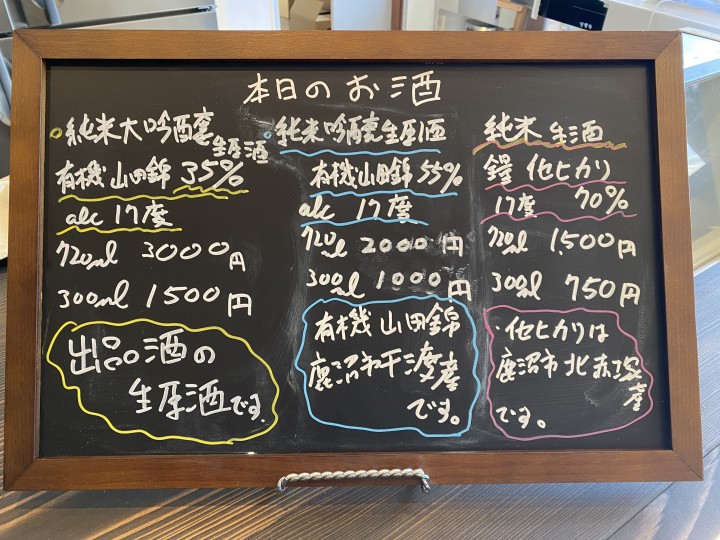 本日のお酒
純米大吟醸
生原酒
有機山田錦 35%
alc 17度
720ml 3000円
300ml 1500円
出品酒の
生原酒です。
純米吟醸生原酒
有機山田錦 55%
alc 17度
720ml 2000円
300ml 1000円
有機山田錦
鹿沼市干渡産
です。
純米 生酒
他ヒカリ
17度 70%
720ml 1,500円
300ml 750円
・他ヒカリは
鹿沼市北赤塚産
です。